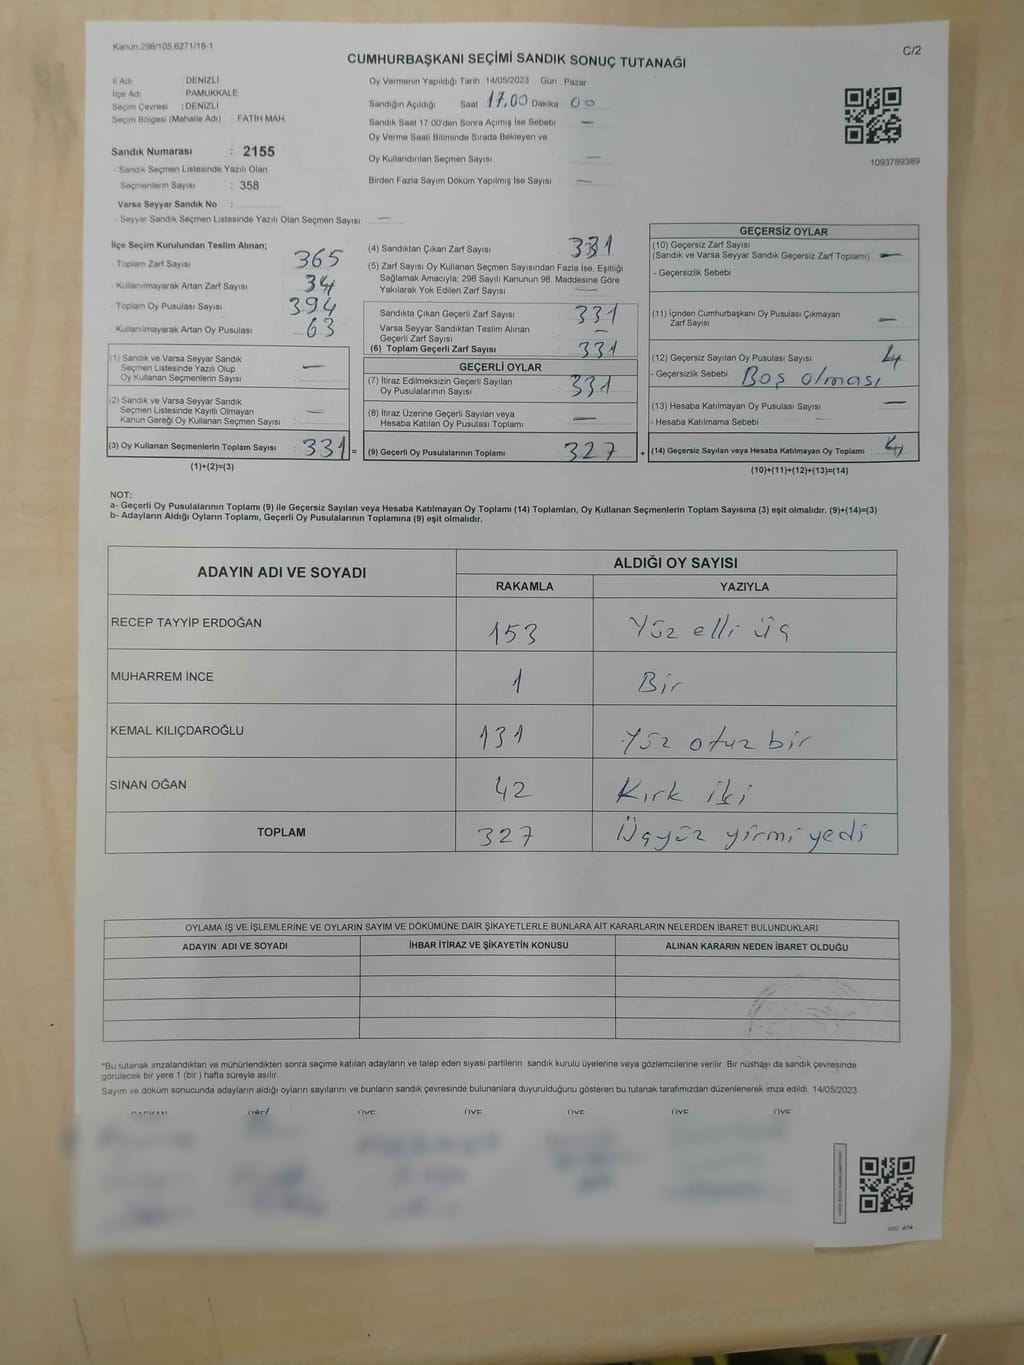 Kanun 298/105,6271/18-1
C/2
CUMHURBAŞKANI SEÇİMİ SANDIK SONUÇ TUTANAĞI
İl Adı : DENİZLİ
İlçe Adı : PAMUKKALE
Seçim Çevresi : DENİZLİ
Seçim Bölgesi (Mahalle Adı) FATİH MAH
Sandık Numarası : 2155
- Sandık Seçmen Listesinde Yazılı Olan
Seçmenlerin Sayısı : 358
Varsa Seyyar Sandık No :
- Seyyar Sandık Seçmen Listesinde Yazılı Olan Seçmen Sayısı: —
Oy Vermenin Yapıldığı Tarih 14/05/2023 Gün Pazar
Sandığın Açıldığı Saat 17.00 Dakika 00
Sandık Saat 17:00'den Sonra Açımış İse Sebebi —
Oy Verme Saati Bitiminde Sırada Bekleyen ve
Oy Kullandırılan Seçmen Sayısı —
Birden Fazla Sayım Döküm Yapılmış İse Sayısı —
1093789389
İlçe Seçim Kurulundan Teslim Alınan;
- Toplam Zarf Sayısı 365
- Kullanılmayarak Artan Zarf Sayısı 34
- Toplam Oy Pusulası Sayısı 394
- Kullanılmayarak Artan Oy Pusulası 63
(1) Sandık ve Varsa Seyyar Sandık
Seçmen Listesinde Yazılı Olup
Oy Kullanan Seçmenlerin Sayısı —
(2) Sandık ve Varsa Seyyar Sandık
Seçmen Listesinde Kayıtlı Olmayan
Kanun Gereği Oy Kullanan Seçmen Sayısı —
(3) Oy Kullanan Seçmenlerin Toplam Sayısı 331 =
(1)+(2)=(3)
(4) Sandıktan Çıkan Zarf Sayısı 331
(5) Zarf Sayısı Oy Kullanan Seçmen Sayısından Fazla İse, Eşitliği
Sağlamak Amacıyla; 298 Sayılı Kanunun 98. Maddesine Göre
Yakılarak Yok Edilen Zarf Sayısı —
Sandıkta Çıkan Geçerli Zarf Sayısı 331
Varsa Seyyar Sandıktan Teslim Alınan
Geçerli Zarf Sayısı —
(6) Toplam Geçerli Zarf Sayısı 331
GEÇERLİ OYLAR
(7) İtiraz Edilmeksizin Geçerli Sayılan
Oy Pusulalarının Sayısı 331
(8) İtiraz Üzerine Geçerli Sayılan veya
Hesaba Katılan Oy Pusulası Toplamı —
(9) Geçerli Oy Pusulalarının Toplamı 327 +
GEÇERSİZ OYLAR
(10) Geçersiz Zarf Sayısı
(Sandık ve Varsa Seyyar Sandık Geçersiz Zarf Toplamı) —
- Geçersizlik Sebebi
(11) İçinden Cumhurbaşkanı Oy Pusulası Çıkmayan
Zarf Sayısı —
(12) Geçersiz Sayılan Oy Pusulası Sayısı 4
- Geçersizlik Sebebi Boş olması
(13) Hesaba Katılmayan Oy Pusulası Sayısı —
- Hesaba Katılmama Sebebi
(14) Geçersiz Sayılan veya Hesaba Katılmayan Oy Toplamı 4
(10)+(11)+(12)+(13)=(14)
NOT:
a- Geçerli Oy Pusulalarının Toplamı (9) ile Geçersiz Sayılan veya Hesaba Katılmayan Oy Toplamı (14) Toplamları, Oy Kullanan Seçmenlerin Toplam Sayısına (3) eşit olmalıdır. (9)+(14)=(3)
b- Adayların Aldığı Oyların Toplamı, Geçerli Oy Pusulalarının Toplamına (9) eşit olmalıdır.
ADAYIN ADI VE SOYADI ALDIĞI OY SAYISI
RAKAMLA YAZIYLA
RECEP TAYYİP ERDOĞAN 153 Yüz elli üç
MUHARREM İNCE 1 Bir
KEMAL KILIÇDAROĞLU 131 Yüz otuz bir
SİNAN OĞAN 42 Kırk iki
TOPLAM 327 Üçyüz yirmi yedi
OYLAMA İŞ VE İŞLEMLERİNE VE OYLARIN SAYIM VE DÖKÜMÜNE DAİR ŞİKAYETLERLE BUNLARA AİT KARARLARIN NELERDEN İBARET BULUNDUKLARI
ADAYIN ADI VE SOYADI İHBAR İTİRAZ VE ŞİKAYETİN KONUSU ALINAN KARARIN NEDEN İBARET OLDUĞU
*Bu tutanak imzalandıktan ve mühürlendikten sonra seçime katılan adayların ve talep eden siyasi partilerin sandık kurulu üyelerine veya gözlemcilerine verilir. Bir nüshası da sandık çevresinde
görülecek bir yere 1 (bir ) hafta süreyle asılır.
Sayım ve döküm sonucunda adayların aldığı oyların sayılarını ve bunların sandık çevresinde bulunanlara duyurulduğunu gösteren bu tutanak tarafımızdan düzenlenerek imza edildi. 14/05/2023
BAŞKAN ÜYE ÜYE ÜYE ÜYE ÜYE